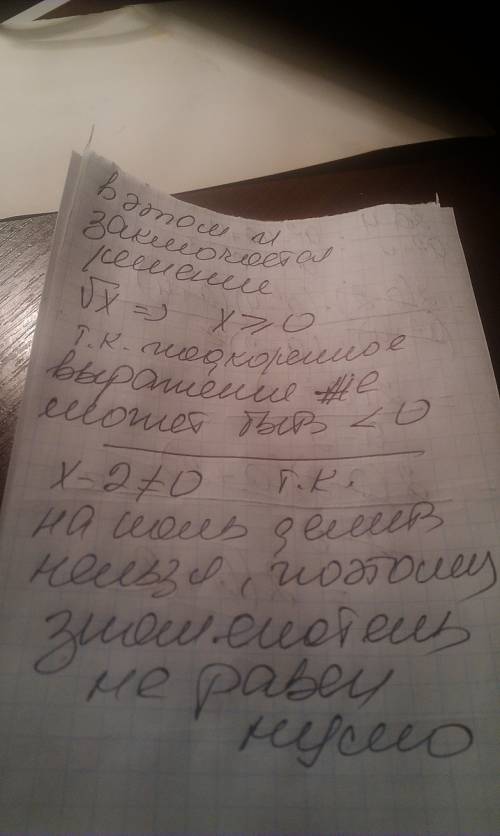 в этом и
заключается
решение
√x => x ⩾ 0
т.к. подкоренное
выражение не
может быть < 0
x - 2 ≠ 0 т.к.
на ноль делить
нельзя, поэтому
знаменатель
не равен
нулю